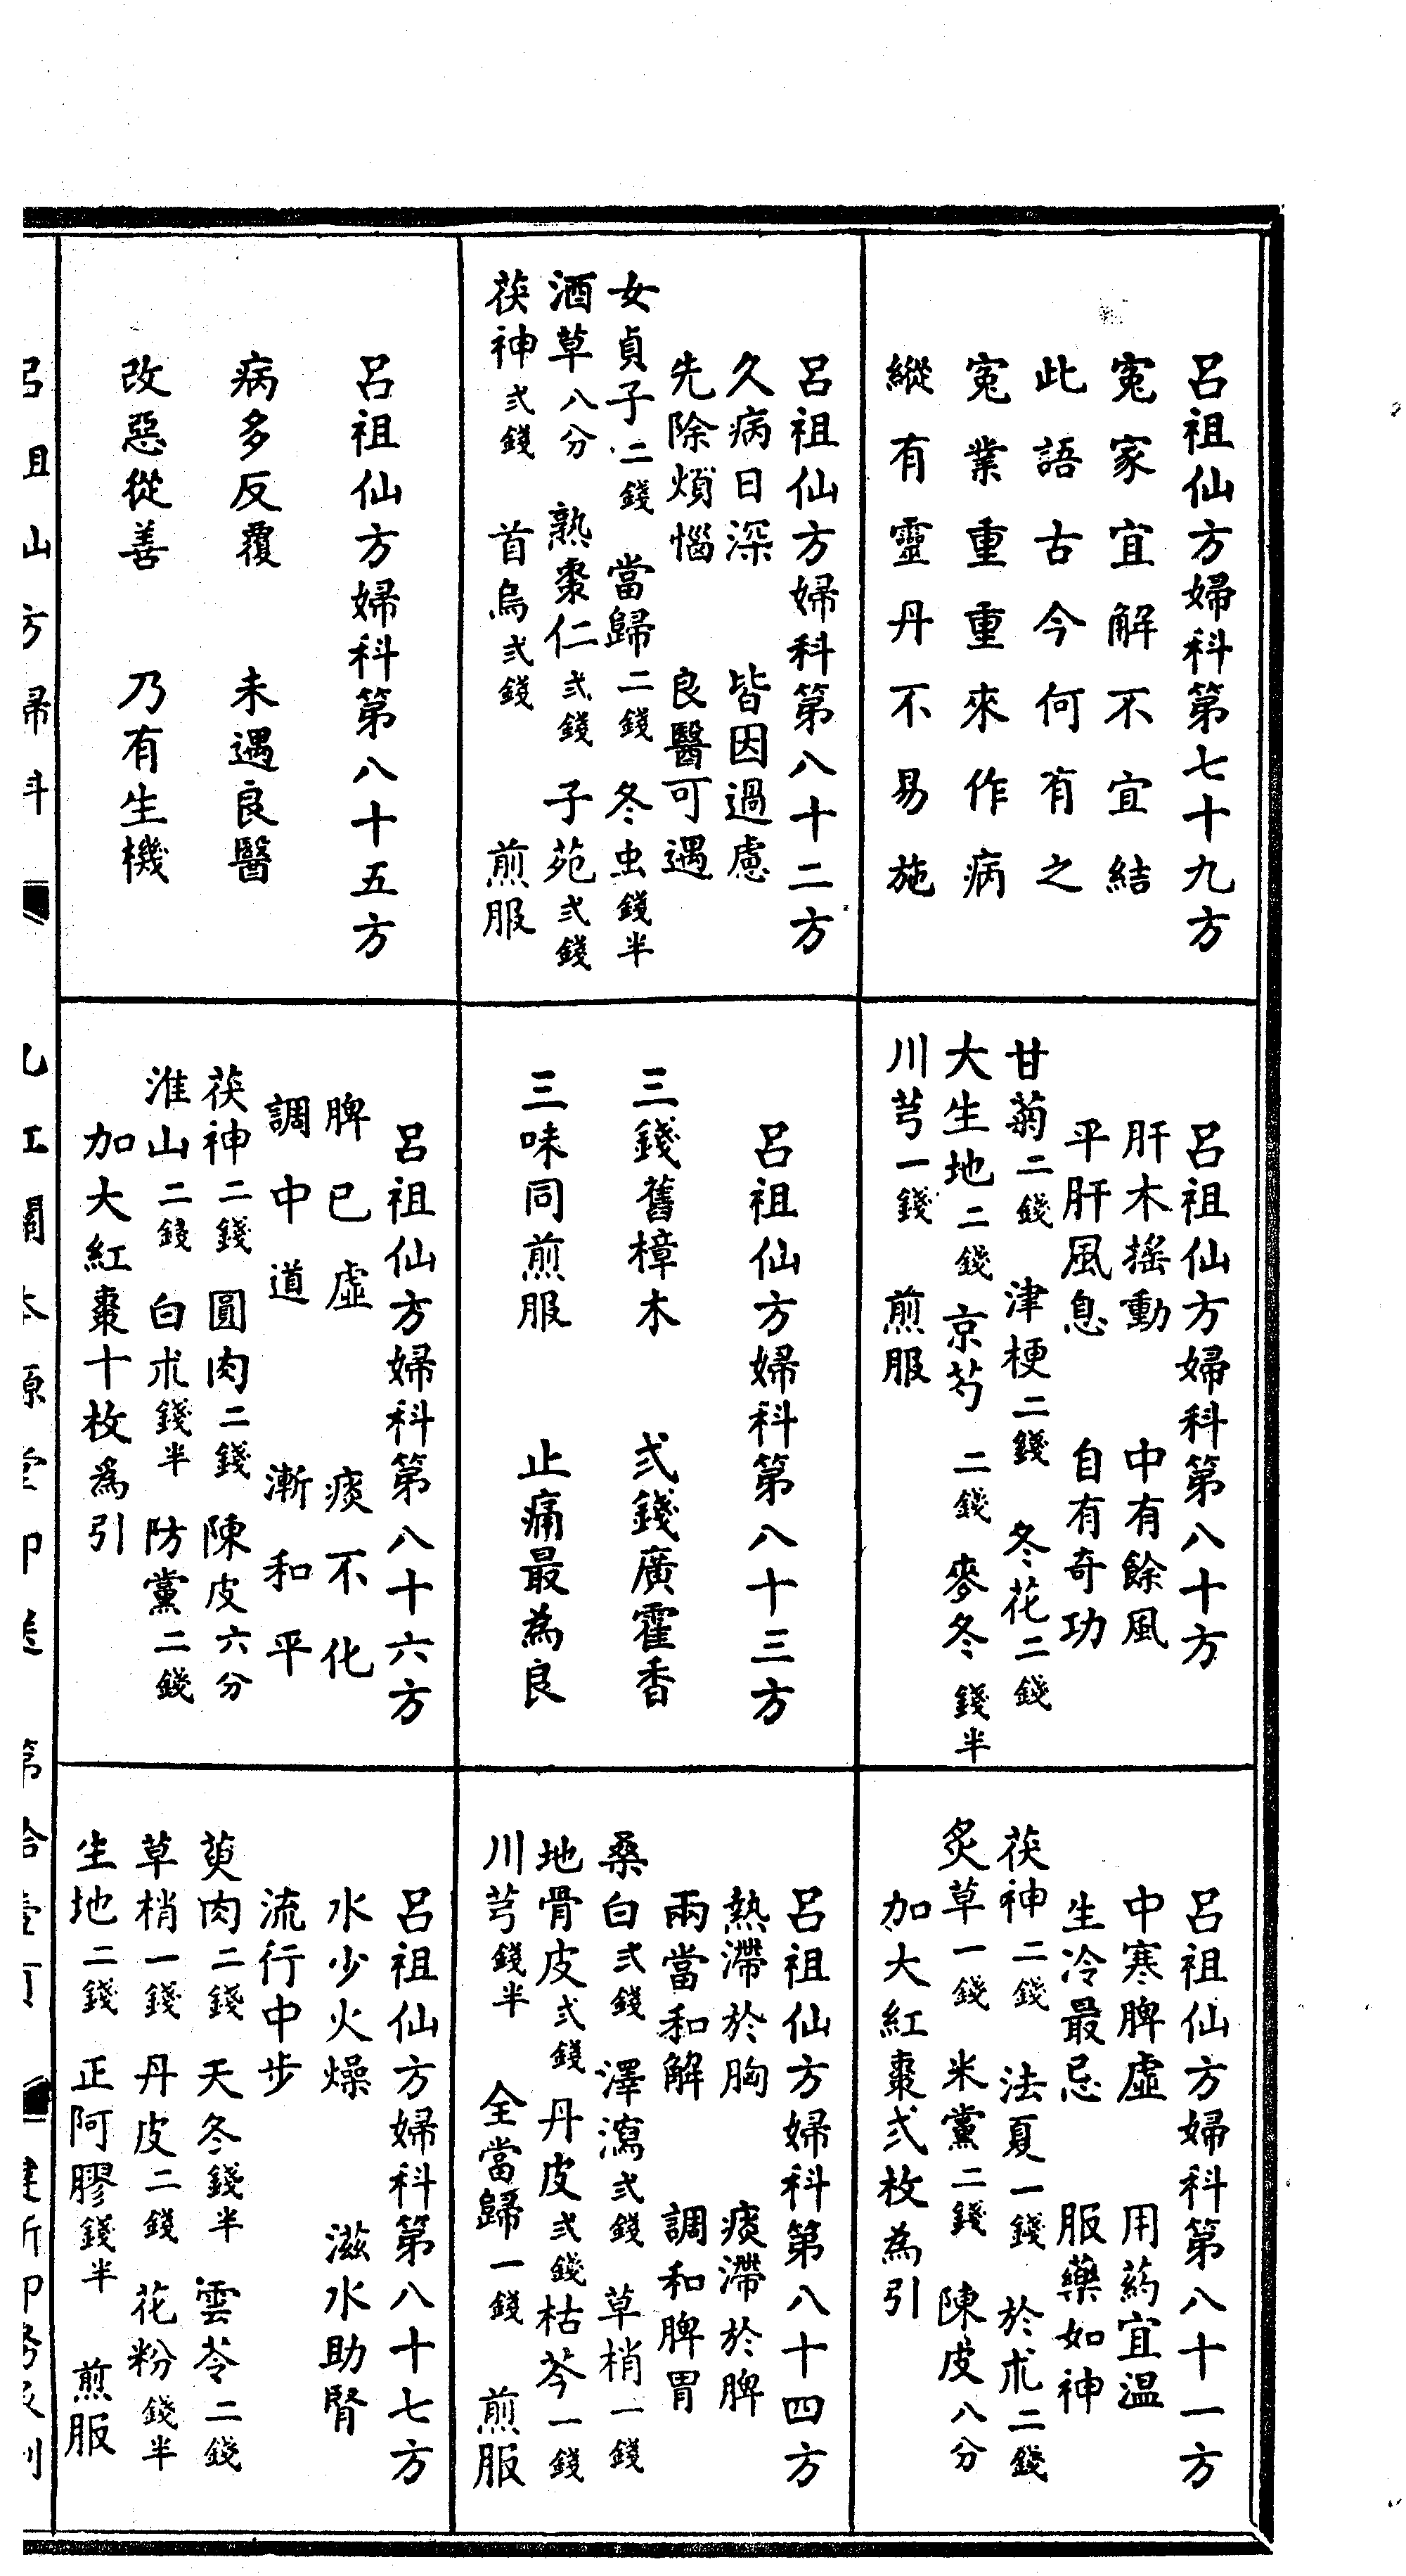 呂祖仙方婦科第七十九方
寃家宜解不宜結
此語古今何有之
寃業重重來作病
縱有靈丹不易施
呂祖仙方婦科第八十方
肝木搖動　中有餘風
平肝風息　自有奇功
甘菊二錢　津梗二錢　冬花二錢
大生地二錢　京芍二錢　麥冬錢半
川芎一錢　煎服
呂祖仙方婦科第八十一方
中寒脾虛　用葯宜温
生冷最忌　服藥如神
茯神二錢　法夏一錢　於朮二錢
炙草一錢　米黨二錢　陳皮八分
加大紅棗弍枚為引
呂祖仙方婦科第八十二方
久病日深　皆因過慮
先除煩惱　良醫可遇
女貞子二錢　當歸二錢　冬虫錢半
酒草八分　熟棗仁弍錢　子苑弍錢
茯神弍錢　首烏弍錢　煎服
呂祖仙方婦科第八十三方
三錢舊樟木　弍錢廣霍香
三味同煎服　止痛最為良
呂祖仙方婦科第八十四方
熱滯於胸　痰滯於脾
兩當和解　調和脾胃
桑白弍錢　澤瀉弍錢　草梢一錢
地骨皮弍錢　丹皮弍錢　枯芩一錢
川芎錢半　全當歸一錢　煎服
呂祖仙方婦科第八十五方
病多反覆　未遇良醫
改惡從善　乃有生機
呂祖仙方婦科第八十六方
脾已虛　痰不化
調中道　漸和平
茯神二錢　圓肉二錢　陳皮六分
淮山二錢　白朮錢半　防黨二錢
加大紅棗十枚為引
呂祖仙方婦科第八十七方
水少火燥　滋水助腎
流行中步
萸肉二錢　天冬錢半　雲苓二錢
草梢一錢　丹皮二錢　花粉錢半
生地二錢　正阿膠錢半　煎服
呂祖仙方婦科